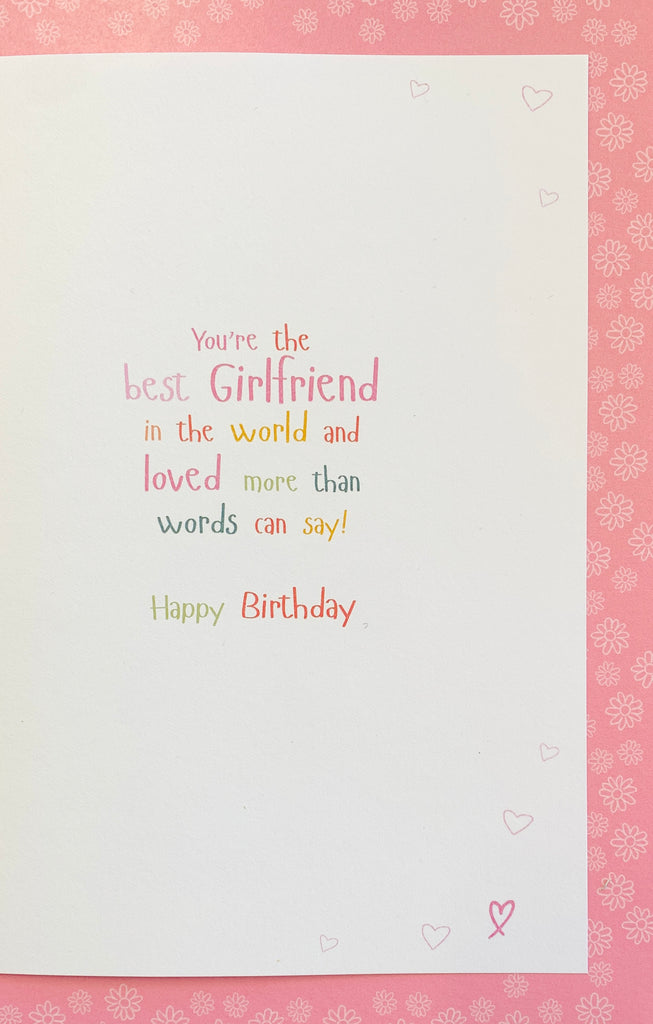 You're the
best Girlfriend
in the world and
loved more than
words can say!
Happy Birthday